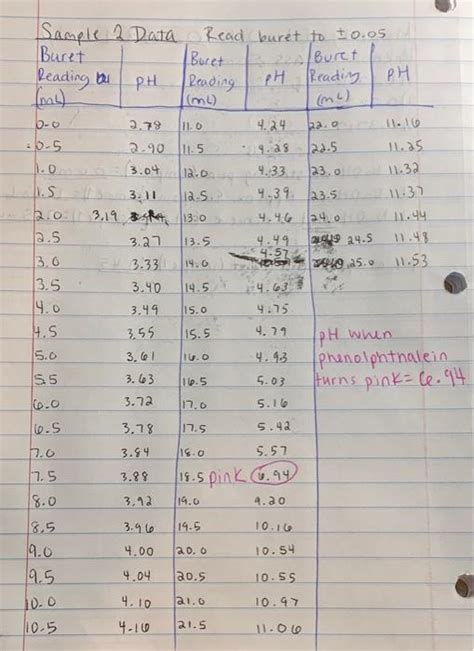 Sample 2 Data Read buret to ±0.05
Buret Reading (mL) pH Buret Reading (mL) pH Buret Reading (mL) pH
0.0 2.78 11.0 4.24 22.0 11.16
0.5 2.90 11.5 4.28 22.5 11.25
1.0 3.04 12.0 4.33 23.0 11.32
1.5 3.11 12.5 4.39 23.5 11.37
2.0 3.19 13.0 4.46 24.0 11.44
2.5 3.27 13.5 4.49 24.5 11.48
3.0 3.33 14.0 4.57 25.0 11.53
3.5 3.40 14.5 4.63
4.0 3.49 15.0 4.75
4.5 3.55 15.5 4.79 pH when
5.0 3.61 16.0 4.93 phenolphthalein
5.5 3.63 16.5 5.03 turns pink = 6.94
6.0 3.72 17.0 5.16
6.5 3.78 17.5 5.42
7.0 3.84 18.0 5.57
7.5 3.88 18.5 pink 6.94
8.0 3.92 19.0 9.20
8.5 3.96 19.5 10.16
9.0 4.00 20.0 10.54
9.5 4.04 20.5 10.55
10.0 4.10 21.0 10.97
10.5 4.16 21.5 11.06